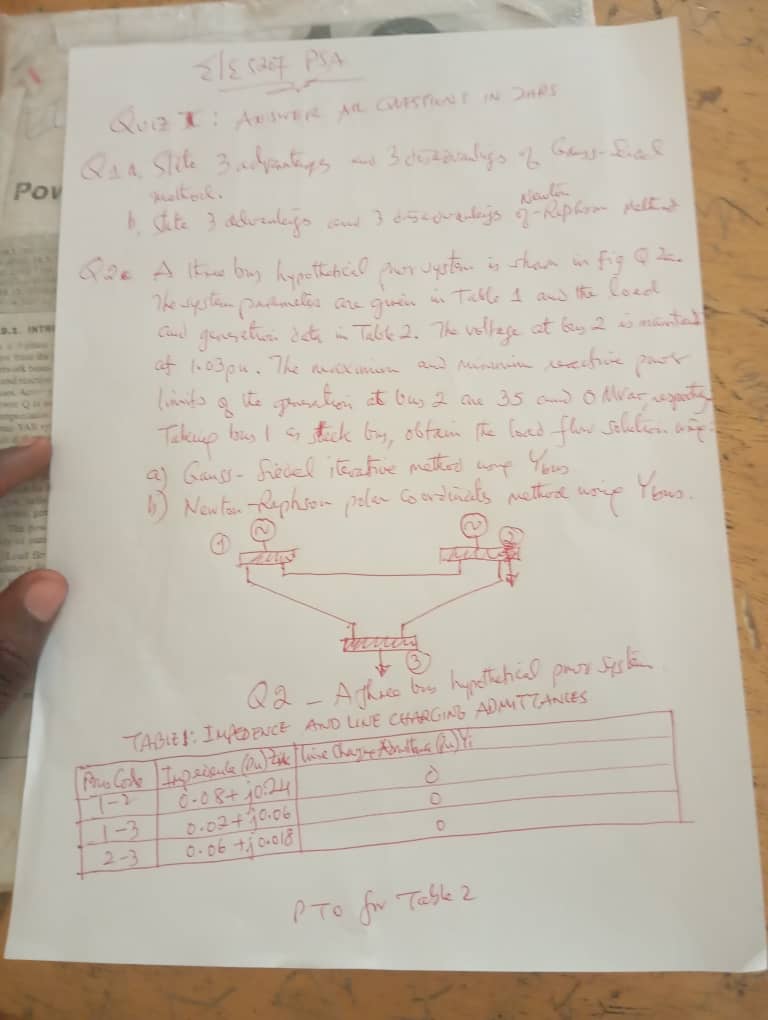 ELE 5207 PSA
QUIZ I: ANSWER ALL QUESTIONS IN PAIRS
Q1a. State 3 advantages and 3 disadvantages of Gauss-Siedel
method.
b. State 3 advantages and 3 disadvantages of Newton-Raphson Method
Q2. A three bus hypothetical power system is shown in fig Q2a.
The system parameters are given in Table 1 and the load
and generation data in Table 2. The voltage at bus 2 is maintained
at 1.03pu. The maximum and minimum reactive power
limits of the generation at bus 2 are 35 and 0 Mvar, respectively
Taking bus 1 as slack bus, obtain the load flow solution using:
a) Gauss-Siedel iterative method using Ybus
b) Newton-Raphson polar coordinates method using Ybus.
1
2
3
Q2 - A three bus hypothetical power system
TABLE 1: IMPEDENCE AND LINE CHARGING ADMITTANCES
Bus Code Impedence (pu) Zik Line Charging Admittance (pu) Yi
1-2 0.08+j0.24 0
1-3 0.02+j0.06 0
2-3 0.06+j0.018 0
PTO for Table 2
Pow